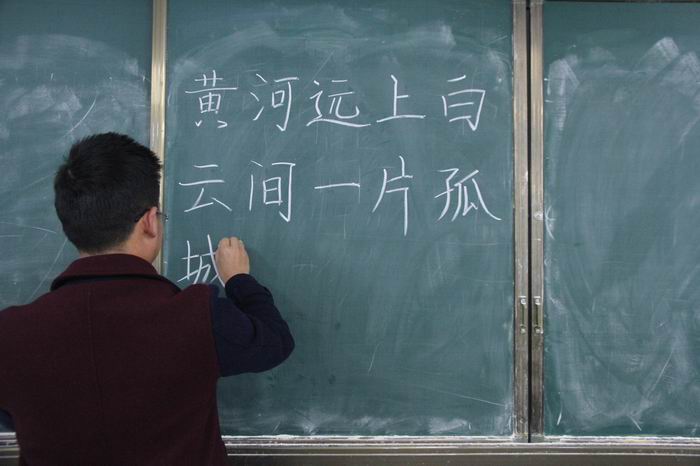 黄河远上白
云间一片孤
城